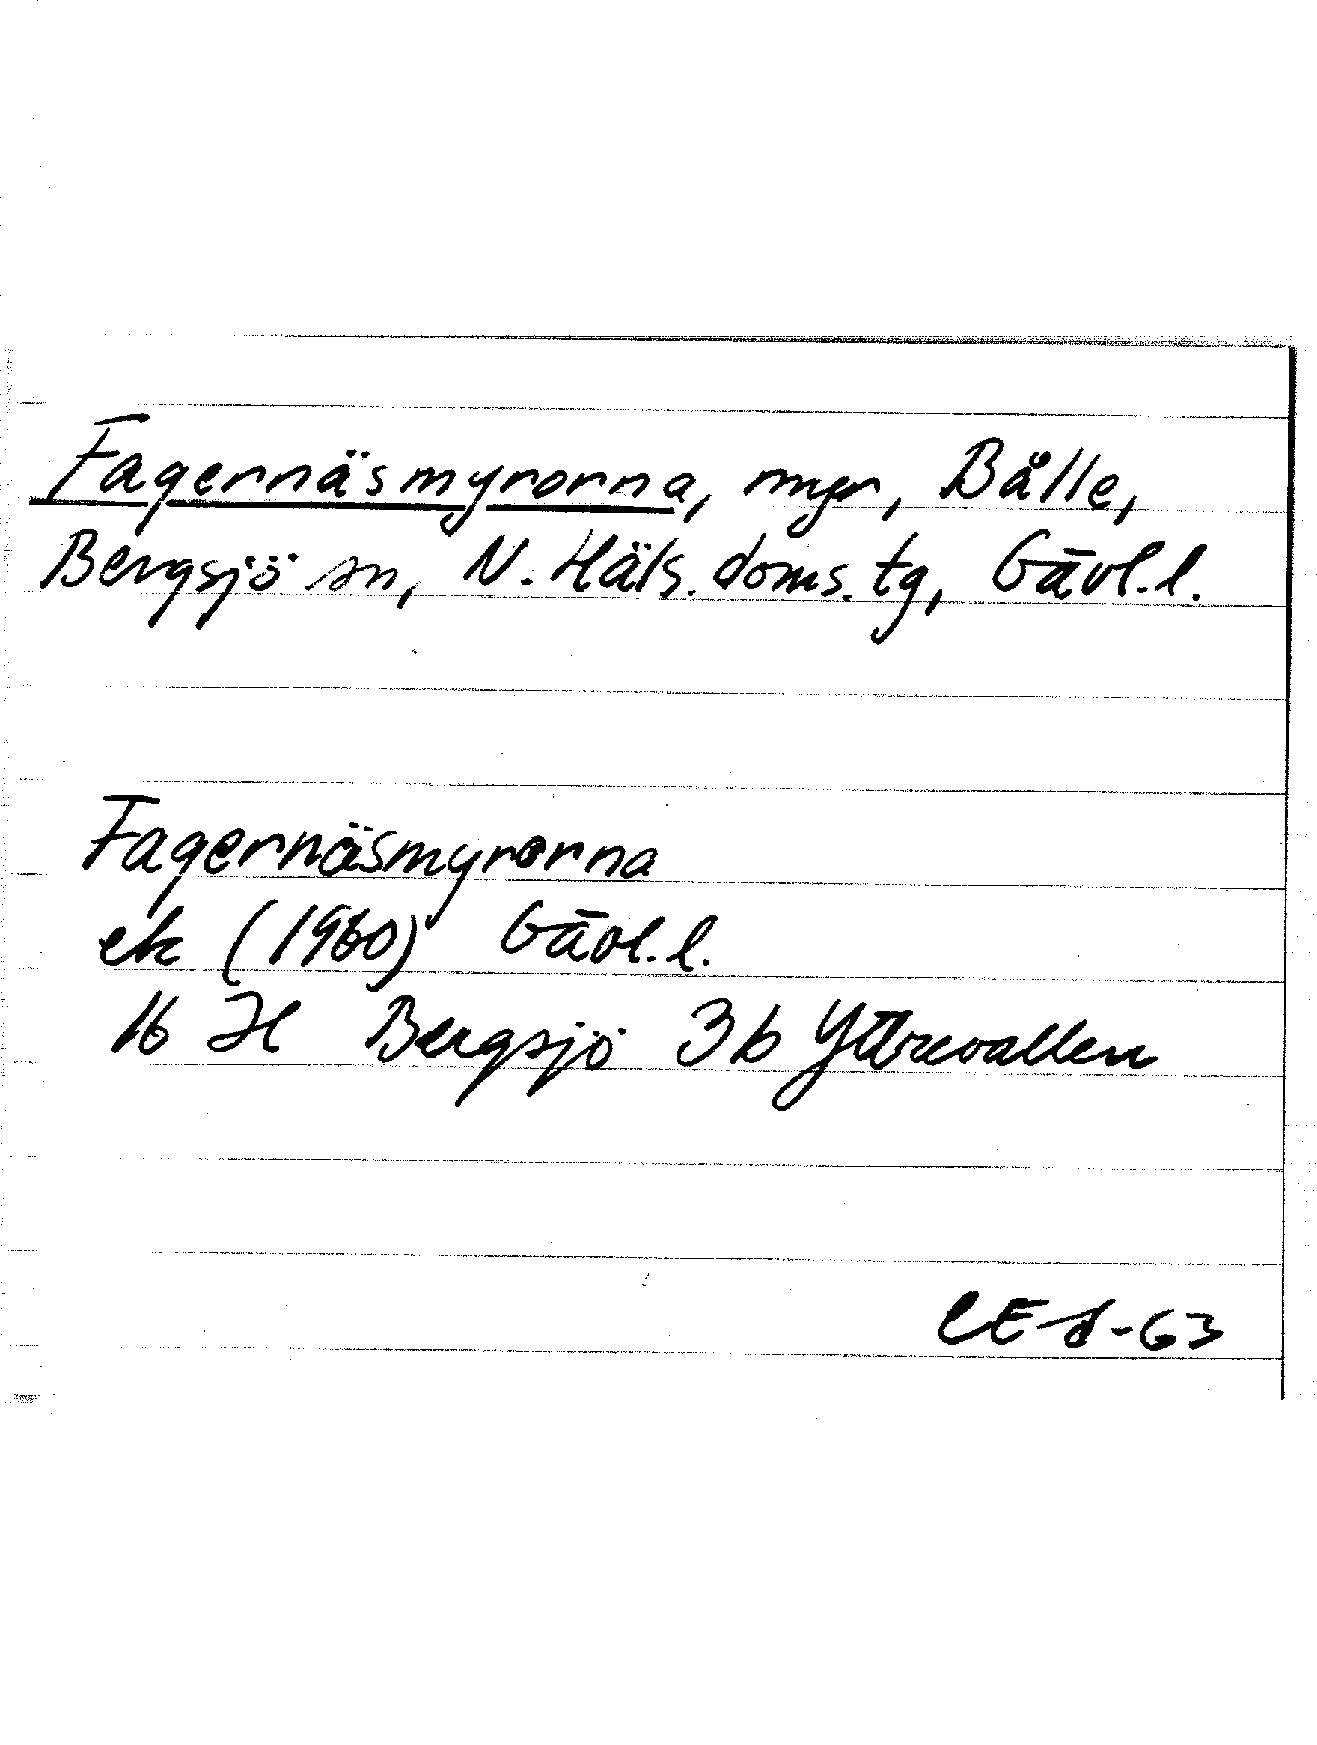 Fagernäsmyrorna, myr, Bålle,
Bergsjö sn, N. Häls. doms. tg, Gävl. l.
Fagernäsmyrorna
ek (1960) Gävl. l.
16 H Bergsjö 3b Yttrevallen